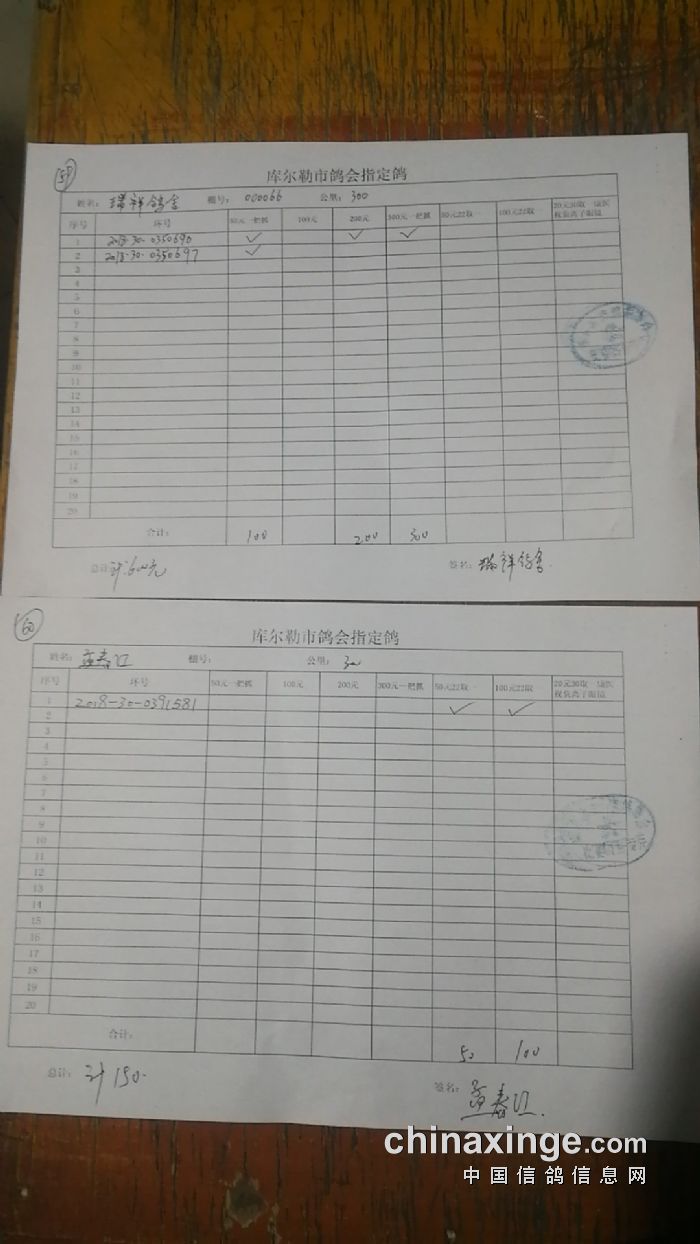 59
库尔勒市鸽会指定鸽
姓名: 瑞祥鸽舍 棚号: 000066 公里: 300
序号 环号 50元一把抓 100元 200元 300元一把抓 50元22取一 100元22取一
1 2018-30-0350690 ✓ ✓ ✓
2 2018-30-0350697 ✓
3
4
5
6
7
8
9
10
11
12
13
14
15
16
17
18
19
20
合计: 100 200 300
总计: 计:600元 签名: 瑞祥鸽舍
60
库尔勒市鸽会指定鸽
姓名: 棚号: 公里: 300
序号 环号 50元一把抓 100元 200元 300元一把抓 50元22取一 100元22取一
1 2018-30-0391581 ✓ ✓
2
3
4
5
6
7
8
9
10
11
12
13
14
15
16
17
18
19
20
合计: 50 100
总计: 计150. 签名:
chinaxinge.com
中国信鸽信息网